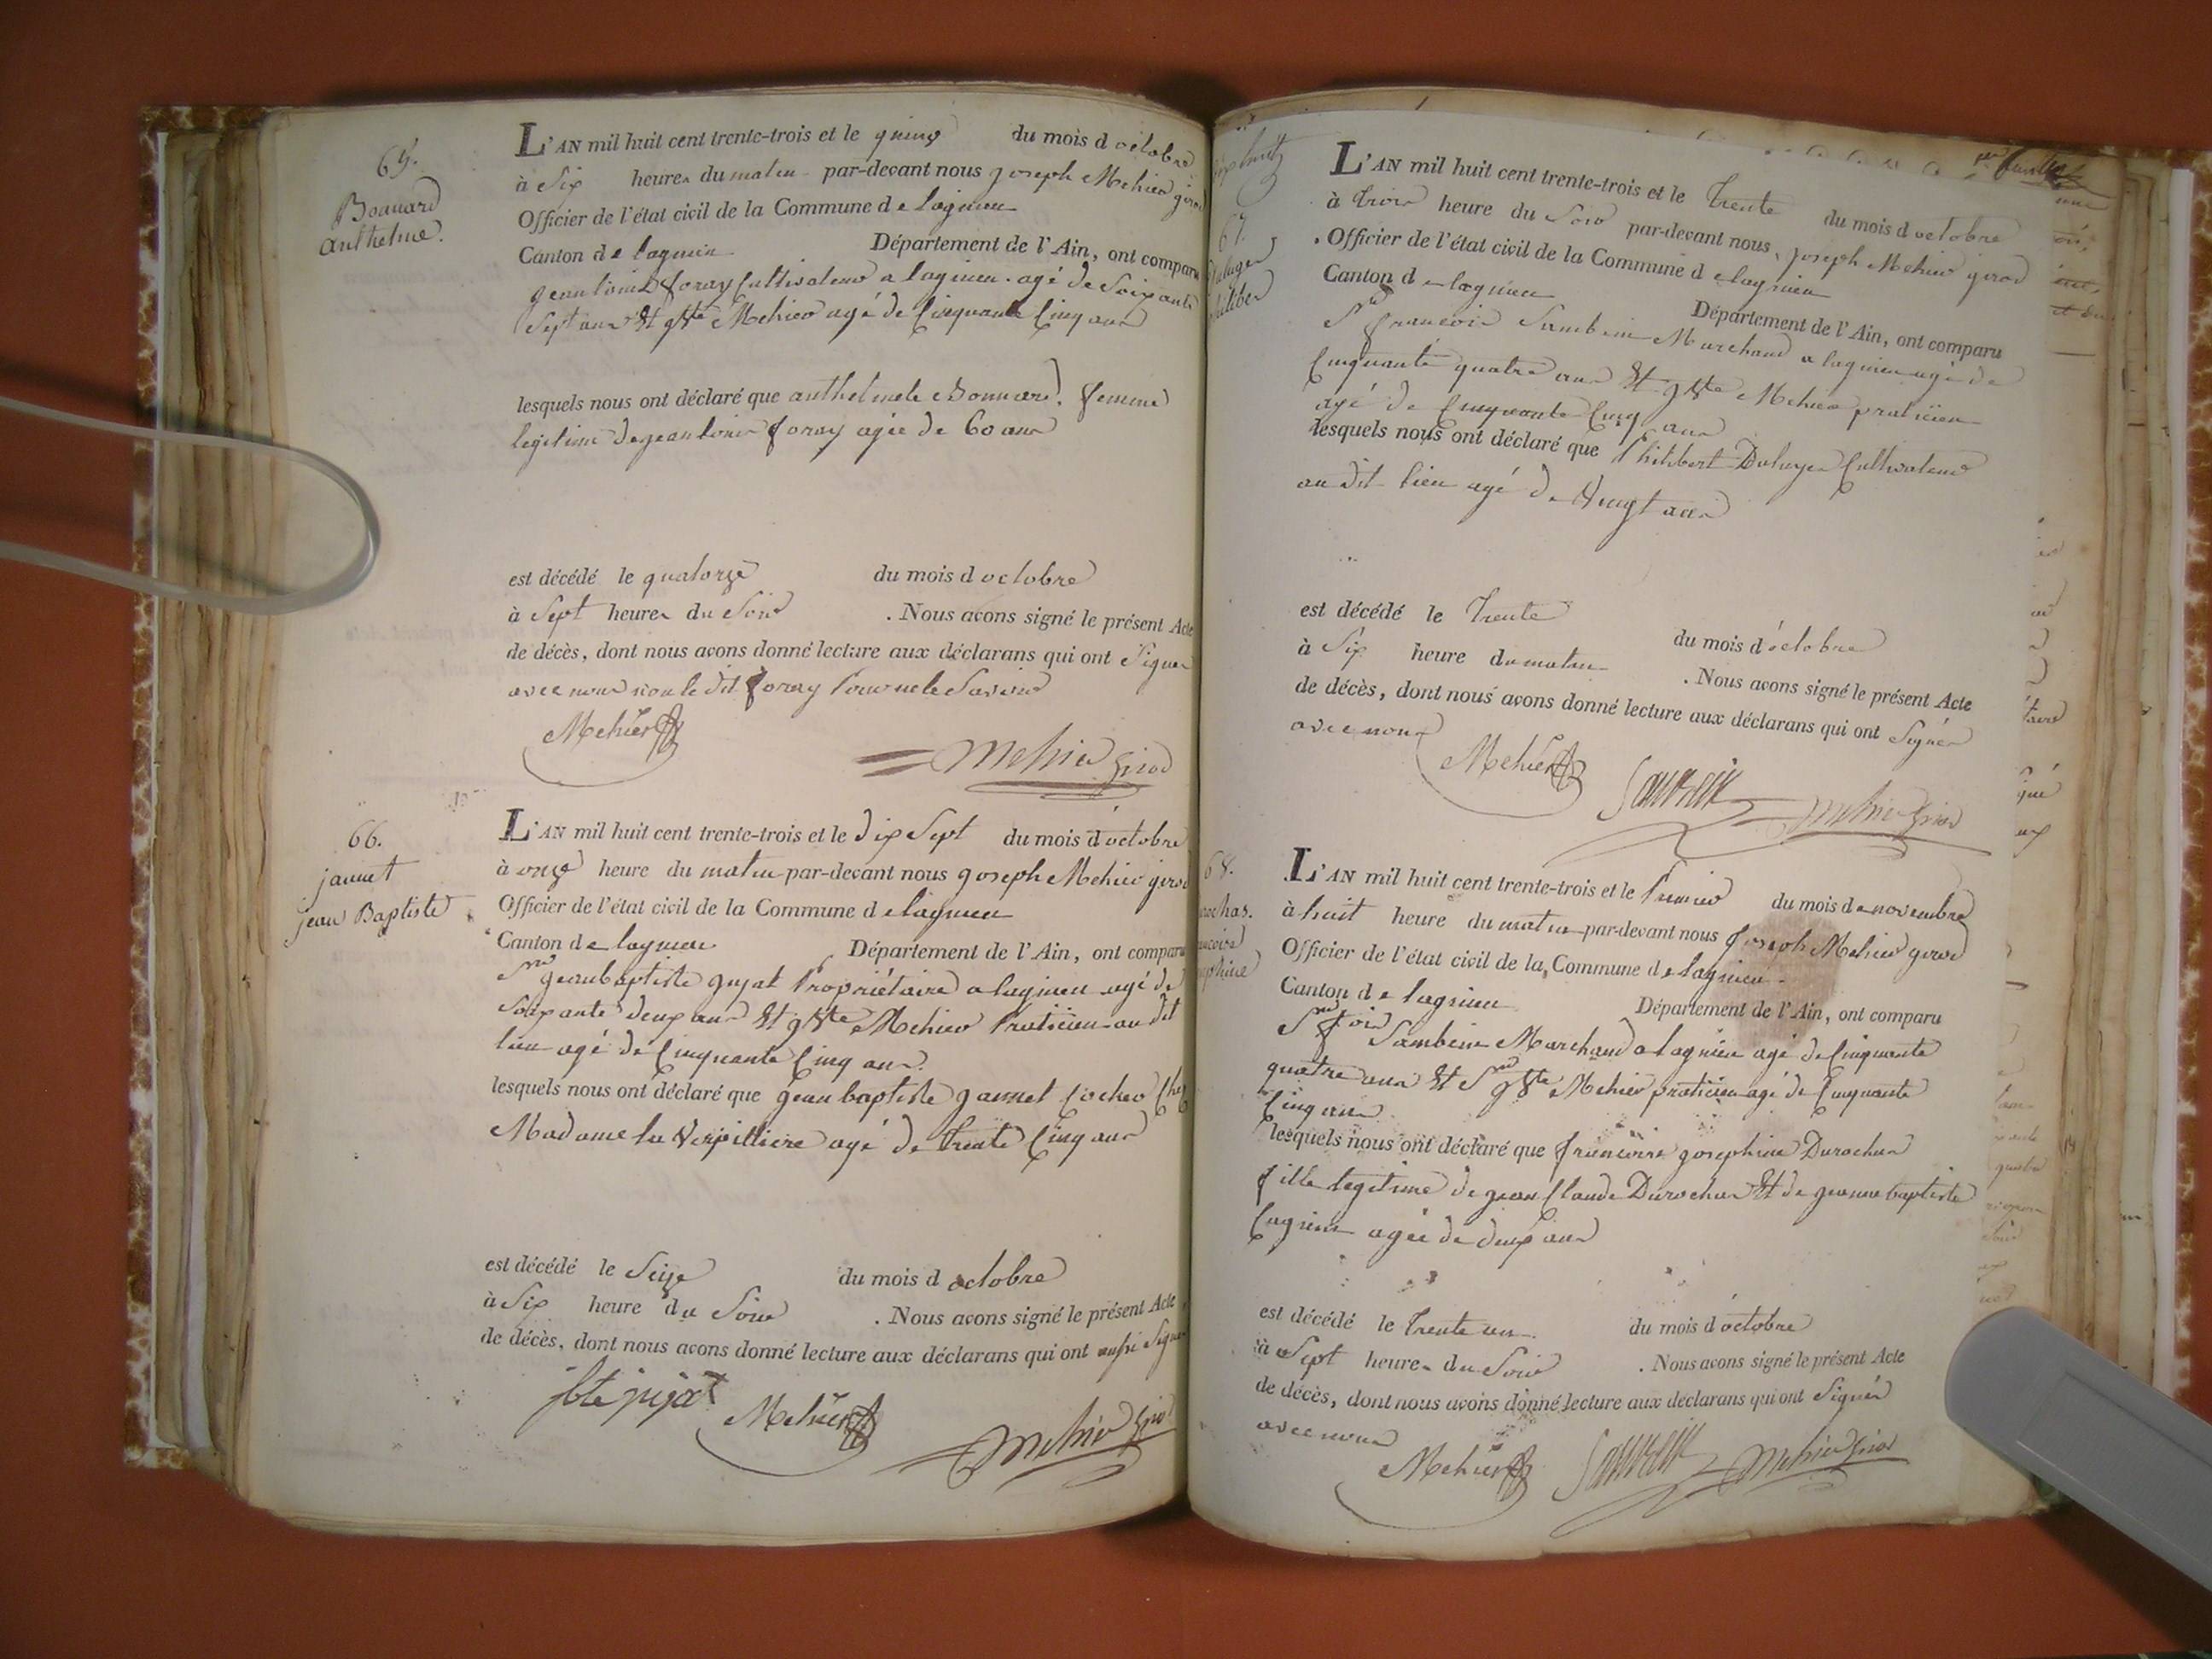 65.
Bonnard
anthelme.
L'AN mil huit cent trente-trois et le quinze du mois d octobre
à Six heures du matin par-devant nous joseph Mehier girod
Officier de l'état civil de la Commune d e lagnieu
Canton d e lagnieu Département de l'Ain, ont comparu
jean louis foray Cultivateur a lagnieu agé de Soixante
Sept ans Et jBte Mehier agé de Cinquante Cinq ans
lesquels nous ont déclaré que anthelmete Bonnard. femme
legitime de jean louis foray agée de 60 ans
est décédé le quatorze du mois d octobre
à Sept heures du Soir . Nous avons signé le présent Acte
de décès, dont nous avons donné lecture aux déclarans qui ont Signer
avec nous non le dit foray pour ne le Savoir
Mehier
Mehier Girod
66.
jannet
jean Baptiste
L'AN mil huit cent trente-trois et le dix Sept du mois d'octobre
à onze heure du matin par-devant nous joseph Mehier girod
Officier de l'état civil de la Commune d e lagnieu
Canton d e lagnieu Département de l'Ain, ont comparu
Sr jean baptiste gujat Propriétaire a lagnieu agé de
Soixante deux ans Et jBte Mehier Praticien au dit
lieu agé de Cinquante Cinq ans.
lesquels nous ont déclaré que jean baptiste jannet Cocher Chez
Madame la Verpilliere agé de trente Cinq ans
est décédé le Seize du mois d octobre
à Six heure du Soir . Nous avons signé le présent Acte
de décès, dont nous avons donné lecture aux déclarans qui ont aussi Signer
jbte gujat Mehier Mehier Girod
67.
L'AN mil huit cent trente-trois et le Trente du mois d octobre
à trois heure du Soir par-devant nous, joseph Mehier girod
Officier de l'état civil de la Commune d e lagnieu
Canton d e lagnieu Département de l'Ain, ont comparu
Sr francois Sambein Marchand a lagnieu agé de
Cinquante quatre ans Et jBte Mehier praticien
agé de Cinquante Cinq ans
lesquels nous ont déclaré que Philibert Daluger Cultivateur
au dit lieu agé de Vingt ans
est décédé le Trente du mois d'octobre
à Six heure du matin . Nous avons signé le présent Acte
de décès, dont nous avons donné lecture aux déclarans qui ont Signér
avec nous
Mehier Mehier Girod
68.
L'AN mil huit cent trente-trois et le Premier du mois de novembre
à huit heure du matin par-devant nous Joseph Mehier girod
Officier de l'état civil de la Commune d e lagnieu
Canton d e lagnieu Département de l'Ain, ont comparu
Sr fois Sambein Marchand a lagnieu agé de Cinquante
quatre ans Et Sr jBte Mehier praticien agé de Cinquante
Cinq ans
lesquels nous ont déclaré que francoise josephine Durochas
fille legitime de jean Claude Durochas Et de jeanne baptiste
agée de deux ans
est décédé le Trente un du mois d'octobre
à Sept heures du Soir . Nous avons signé le présent Acte
de décès, dont nous avons donné lecture aux déclarans qui ont Signér
avec nous
Mehier Mehier Girod